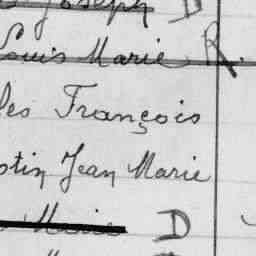 Joseph D
Louis Marie R.
les François
stin Jean Marie
Marie D